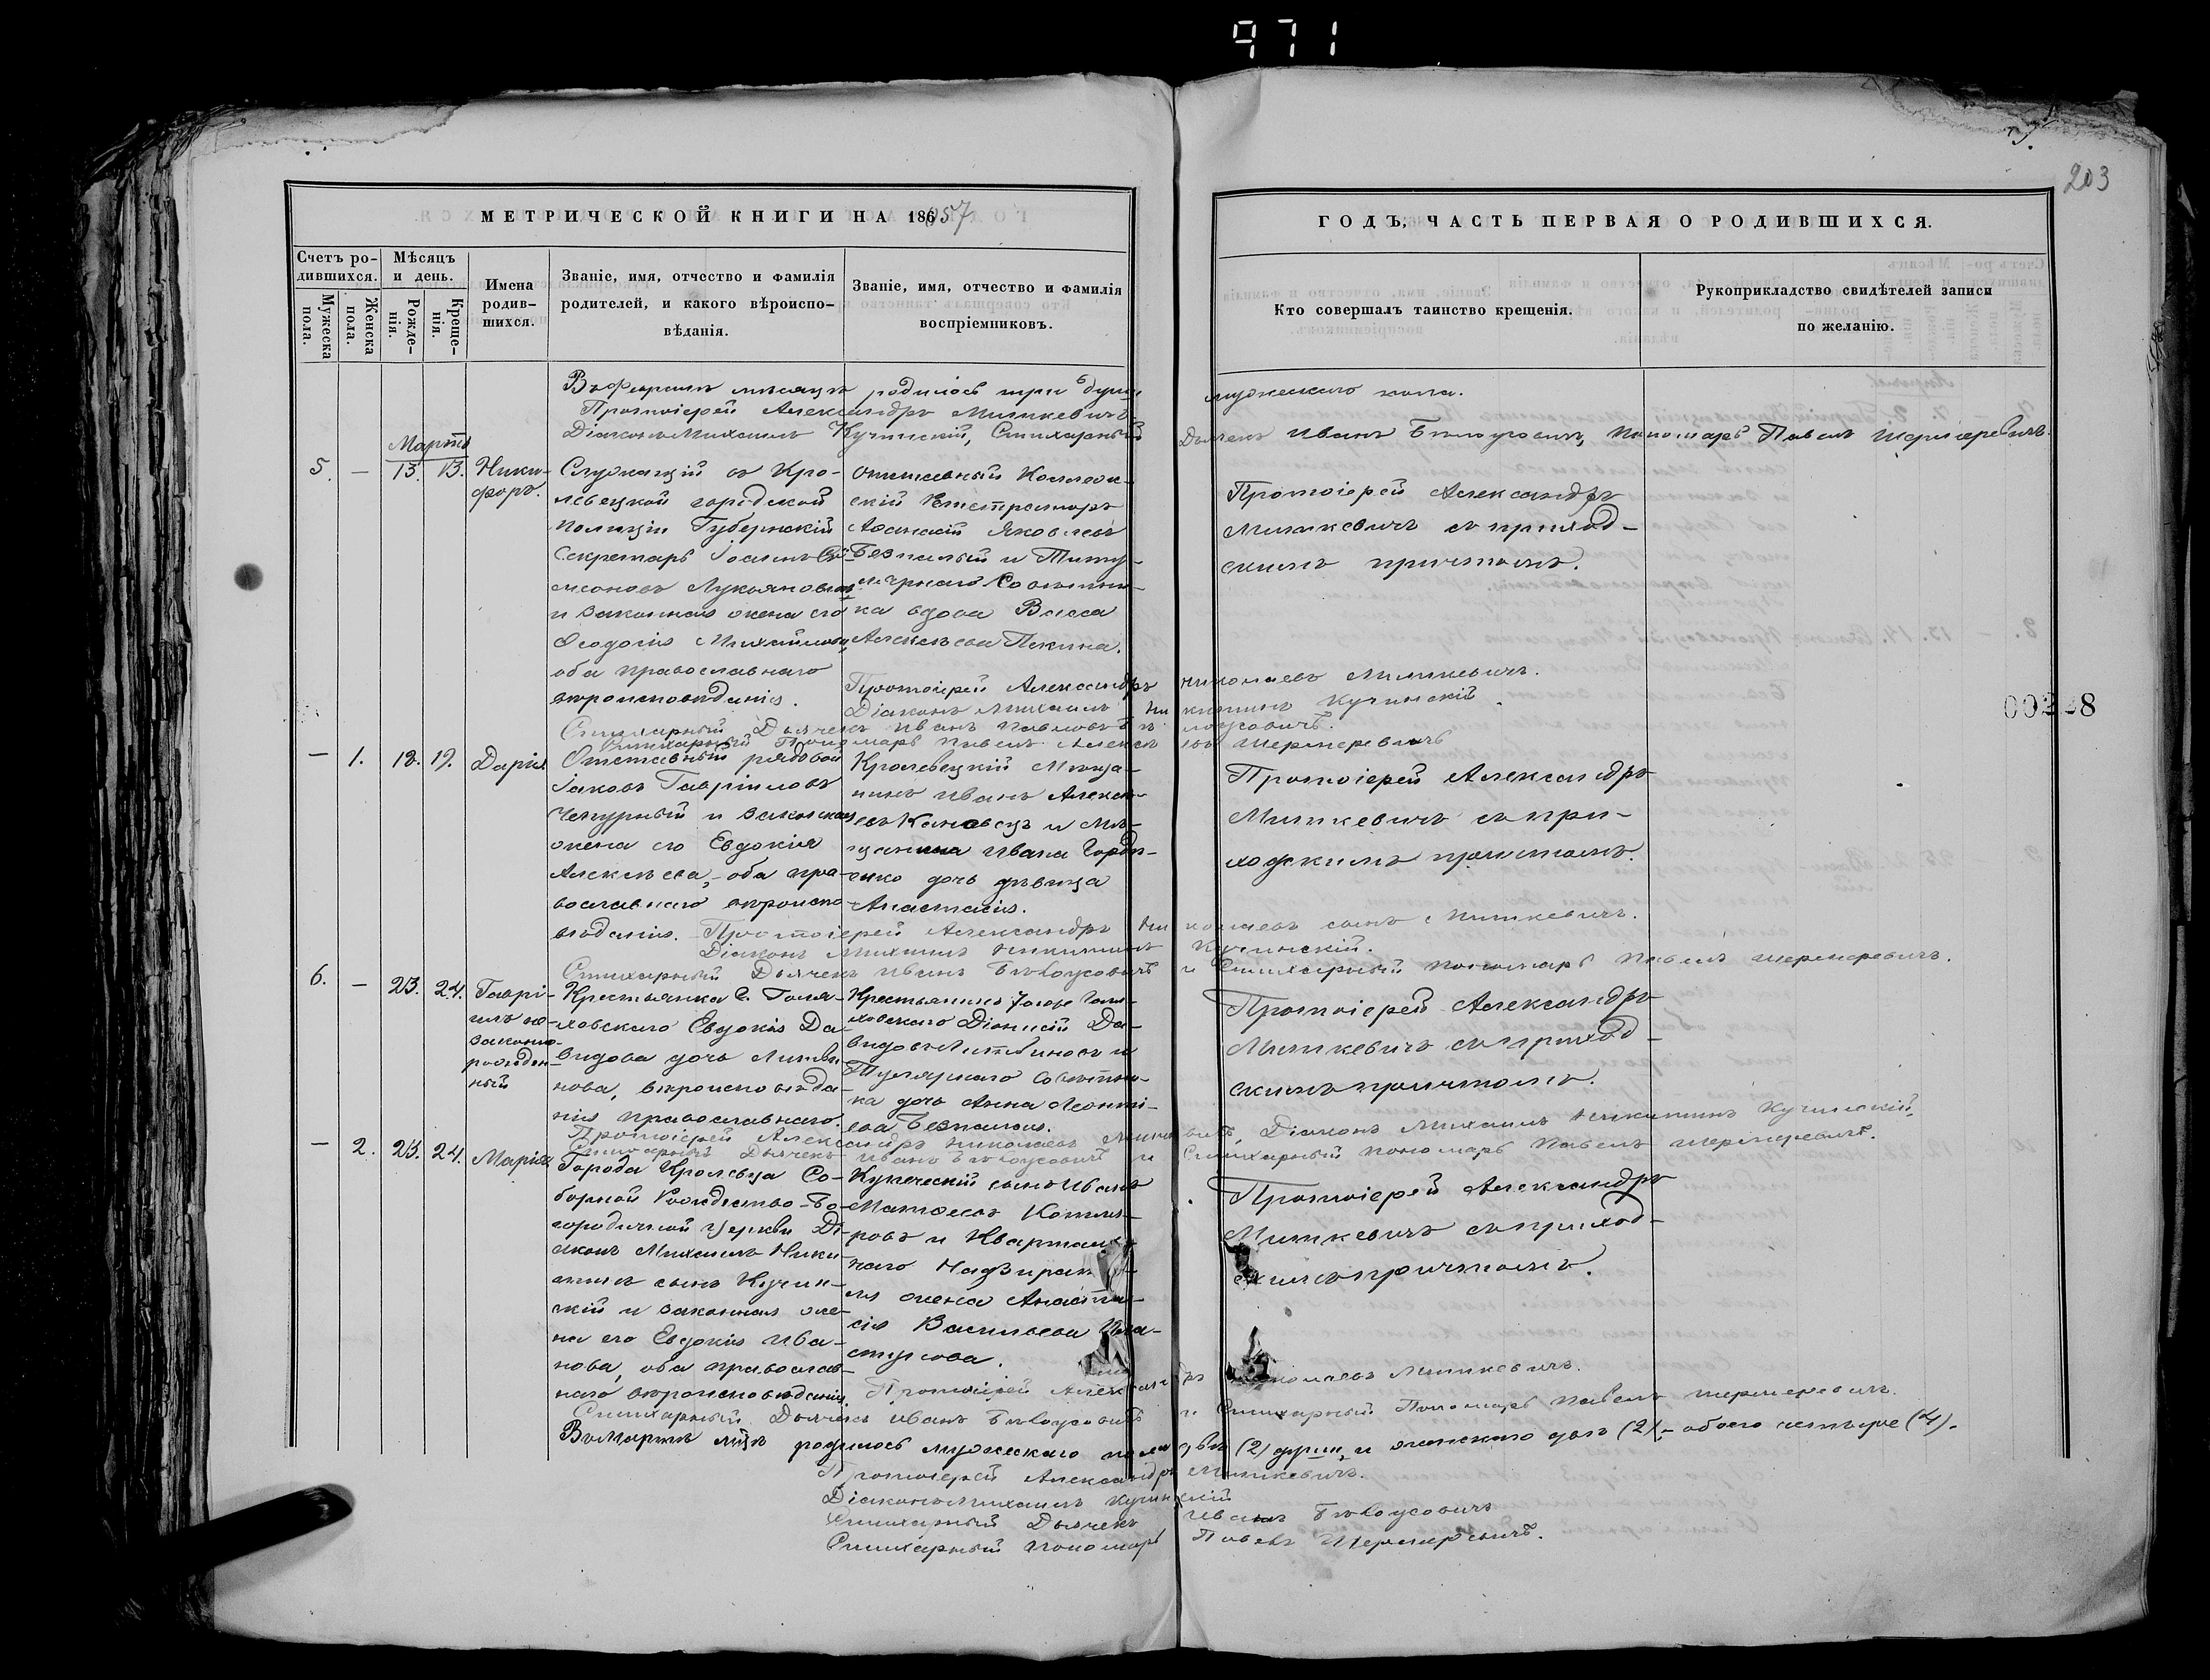 971
203
МЕТРИЧЕСКОЙ КНИГИ НА 186
ГОДЪ, ЧАСТЬ ПЕРВАЯ О РОДИВШИХСЯ.
Счетъ родившихся.
Мужеска пола.
Женска пола.
Мѣсяцъ и день.
Рожденія.
Крещенія.
Имена родившихся.
Званіе, имя, отчество и фамилія
родителей, и какого вѣроиспо-
вѣданія.
Званіе, имя, отчество и фамилія
воспріемниковъ.
Кто совершалъ таинство крещенія.
Рукоприкладство свидѣтелей записи
по желанію.
родилось три души мужескаго пола.
Протоіерей Александръ
Діаконъ Михаилъ Кучинскій, Стихарный Дьячекъ Иванъ Пономарь Павелъ
Марта
5. — 13. 13. Ники-
форъ.
Служащій въ Кро-
левецкой городской
полиціи Губернскій
Секретарь Іоаннъ Си-
меоновъ Лукьяновъ
и законная жена его
Ѳеодосія Михайлова,
оба православнаго
вѣроисповѣданія.
отставный Коллеж-
скій Регистраторъ
Аѳанасій Яковлевъ
Безпалый и Титу-
лярнаго Совѣтни-
ка вдова Васса
Алексѣева
Протоіерей Александръ
съ приход-
скимъ причтомъ.
Протоіерей Александръ Николаевъ
Діаконъ Михаилъ Никитинъ Кучинскій
Стихарный Дьячекъ Иванъ Павловъ
Стихарный Пономарь Павелъ
00228
— 1. 18. 19. Дарія
Отставный рядовой
Іаковъ Гавріиловъ
Чепурный и законная
жена его Евдокія
Алексѣева, – оба пра-
вославнаго вѣроиспо-
вѣданія.
Кролевецкій Мѣща-
нинъ Иванъ Алексѣ-
евъ и Мѣ-
щанина Ивана
дочь дѣвица
Анастасія.
Протоіерей Александръ
съ при-
ходскимъ причтомъ.
Протоіерей Александръ Николаевъ сынъ
Діаконъ Михаилъ Никитинъ Кучинскій.
Стихарный Дьячекъ Иванъ и Стихарный Пономарь Павелъ
6. — 23. 24. Гаврі-
илъ не-
законно-
рожден-
ный
Крестьянка
Евдокія Да-
видова дочь Литви-
нова, вѣроисповѣда-
нія православнаго.
Крестьянинъ
Діонисій Да-
видовъ Литвиновъ и
Совѣтни-
ка дочь Анна Леонті-
ева Безпалая.
Протоіерей Александръ
съ приход-
скимъ причтомъ.
Протоіерей Александръ Николаевъ Діаконъ Михаилъ Никитинъ Кучинскій,
Дьячекъ Иванъ и Стихарный Пономарь Павелъ
— 2. 23. 24. Марія
Города Кролевца Со-
борной Рождество-Бо-
городичной Церкви Ді-
аконъ Михаилъ Ники-
тинъ сынъ Кучин-
скій и законная же-
на его Евдокія Ива-
нова, оба православ-
наго вѣроисповѣданія.
Купеческій сынъ Иванъ
Матѳеевъ Котля-
ровъ и Кварталь-
наго Надзирате-
ля жена Анаста-
сія Васильева
Протоіерей Александръ
съ приход-
скимъ причтомъ.
Протоіерей Александръ Николаевъ
Стихарный Дьячекъ Иванъ и Стихарный Пономарь Павелъ
Въ Мартѣ м-цѣ родилось мужескаго пола двѣ (2) души и женскаго двѣ (2), – обоего четыре (4).
Протоіерей Александръ
Діаконъ Михаилъ Кучинскій
Стихарный Дьячекъ Иванъ
Стихарный Пономарь Павелъ